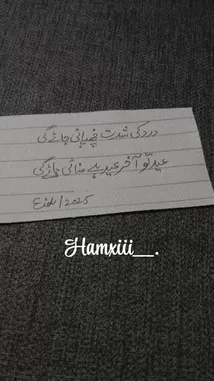 درد کی شدت چھپائی جائے گی
عید تو آخر عید ہے منائی جائے گی
Eid / 2025
Hamxiii__.